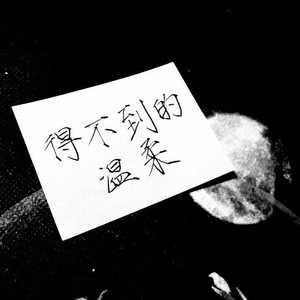 得不到的
温柔